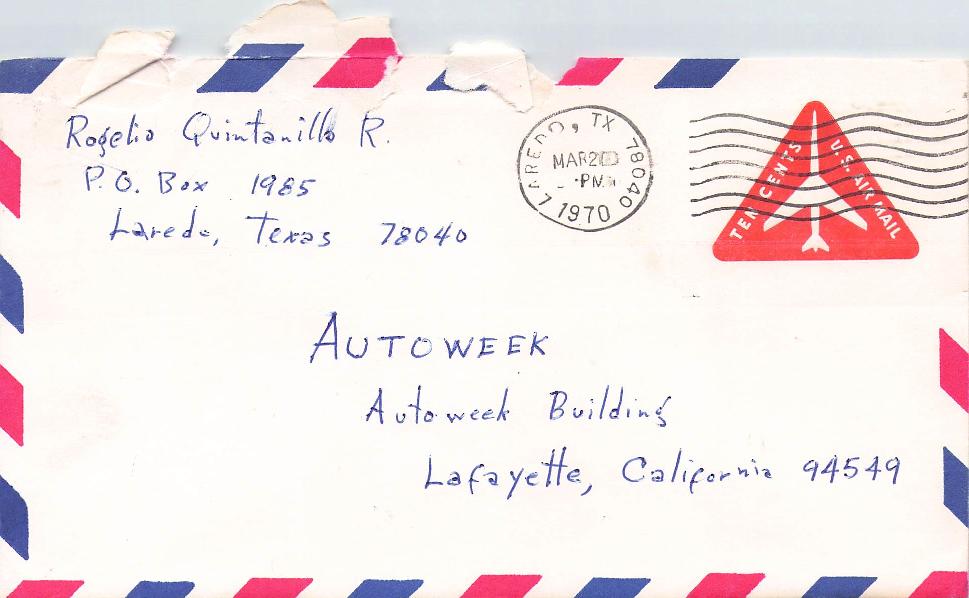 Rogelio Quintanilla R.
P.O. Box 1985
Laredo, Texas 78040
LAREDO, TX 78040
MAR 20
PM
1970
TEN CENTS
U.S. AIR MAIL
AUTOWEEK
Autoweek Building
Lafayette, California 94549